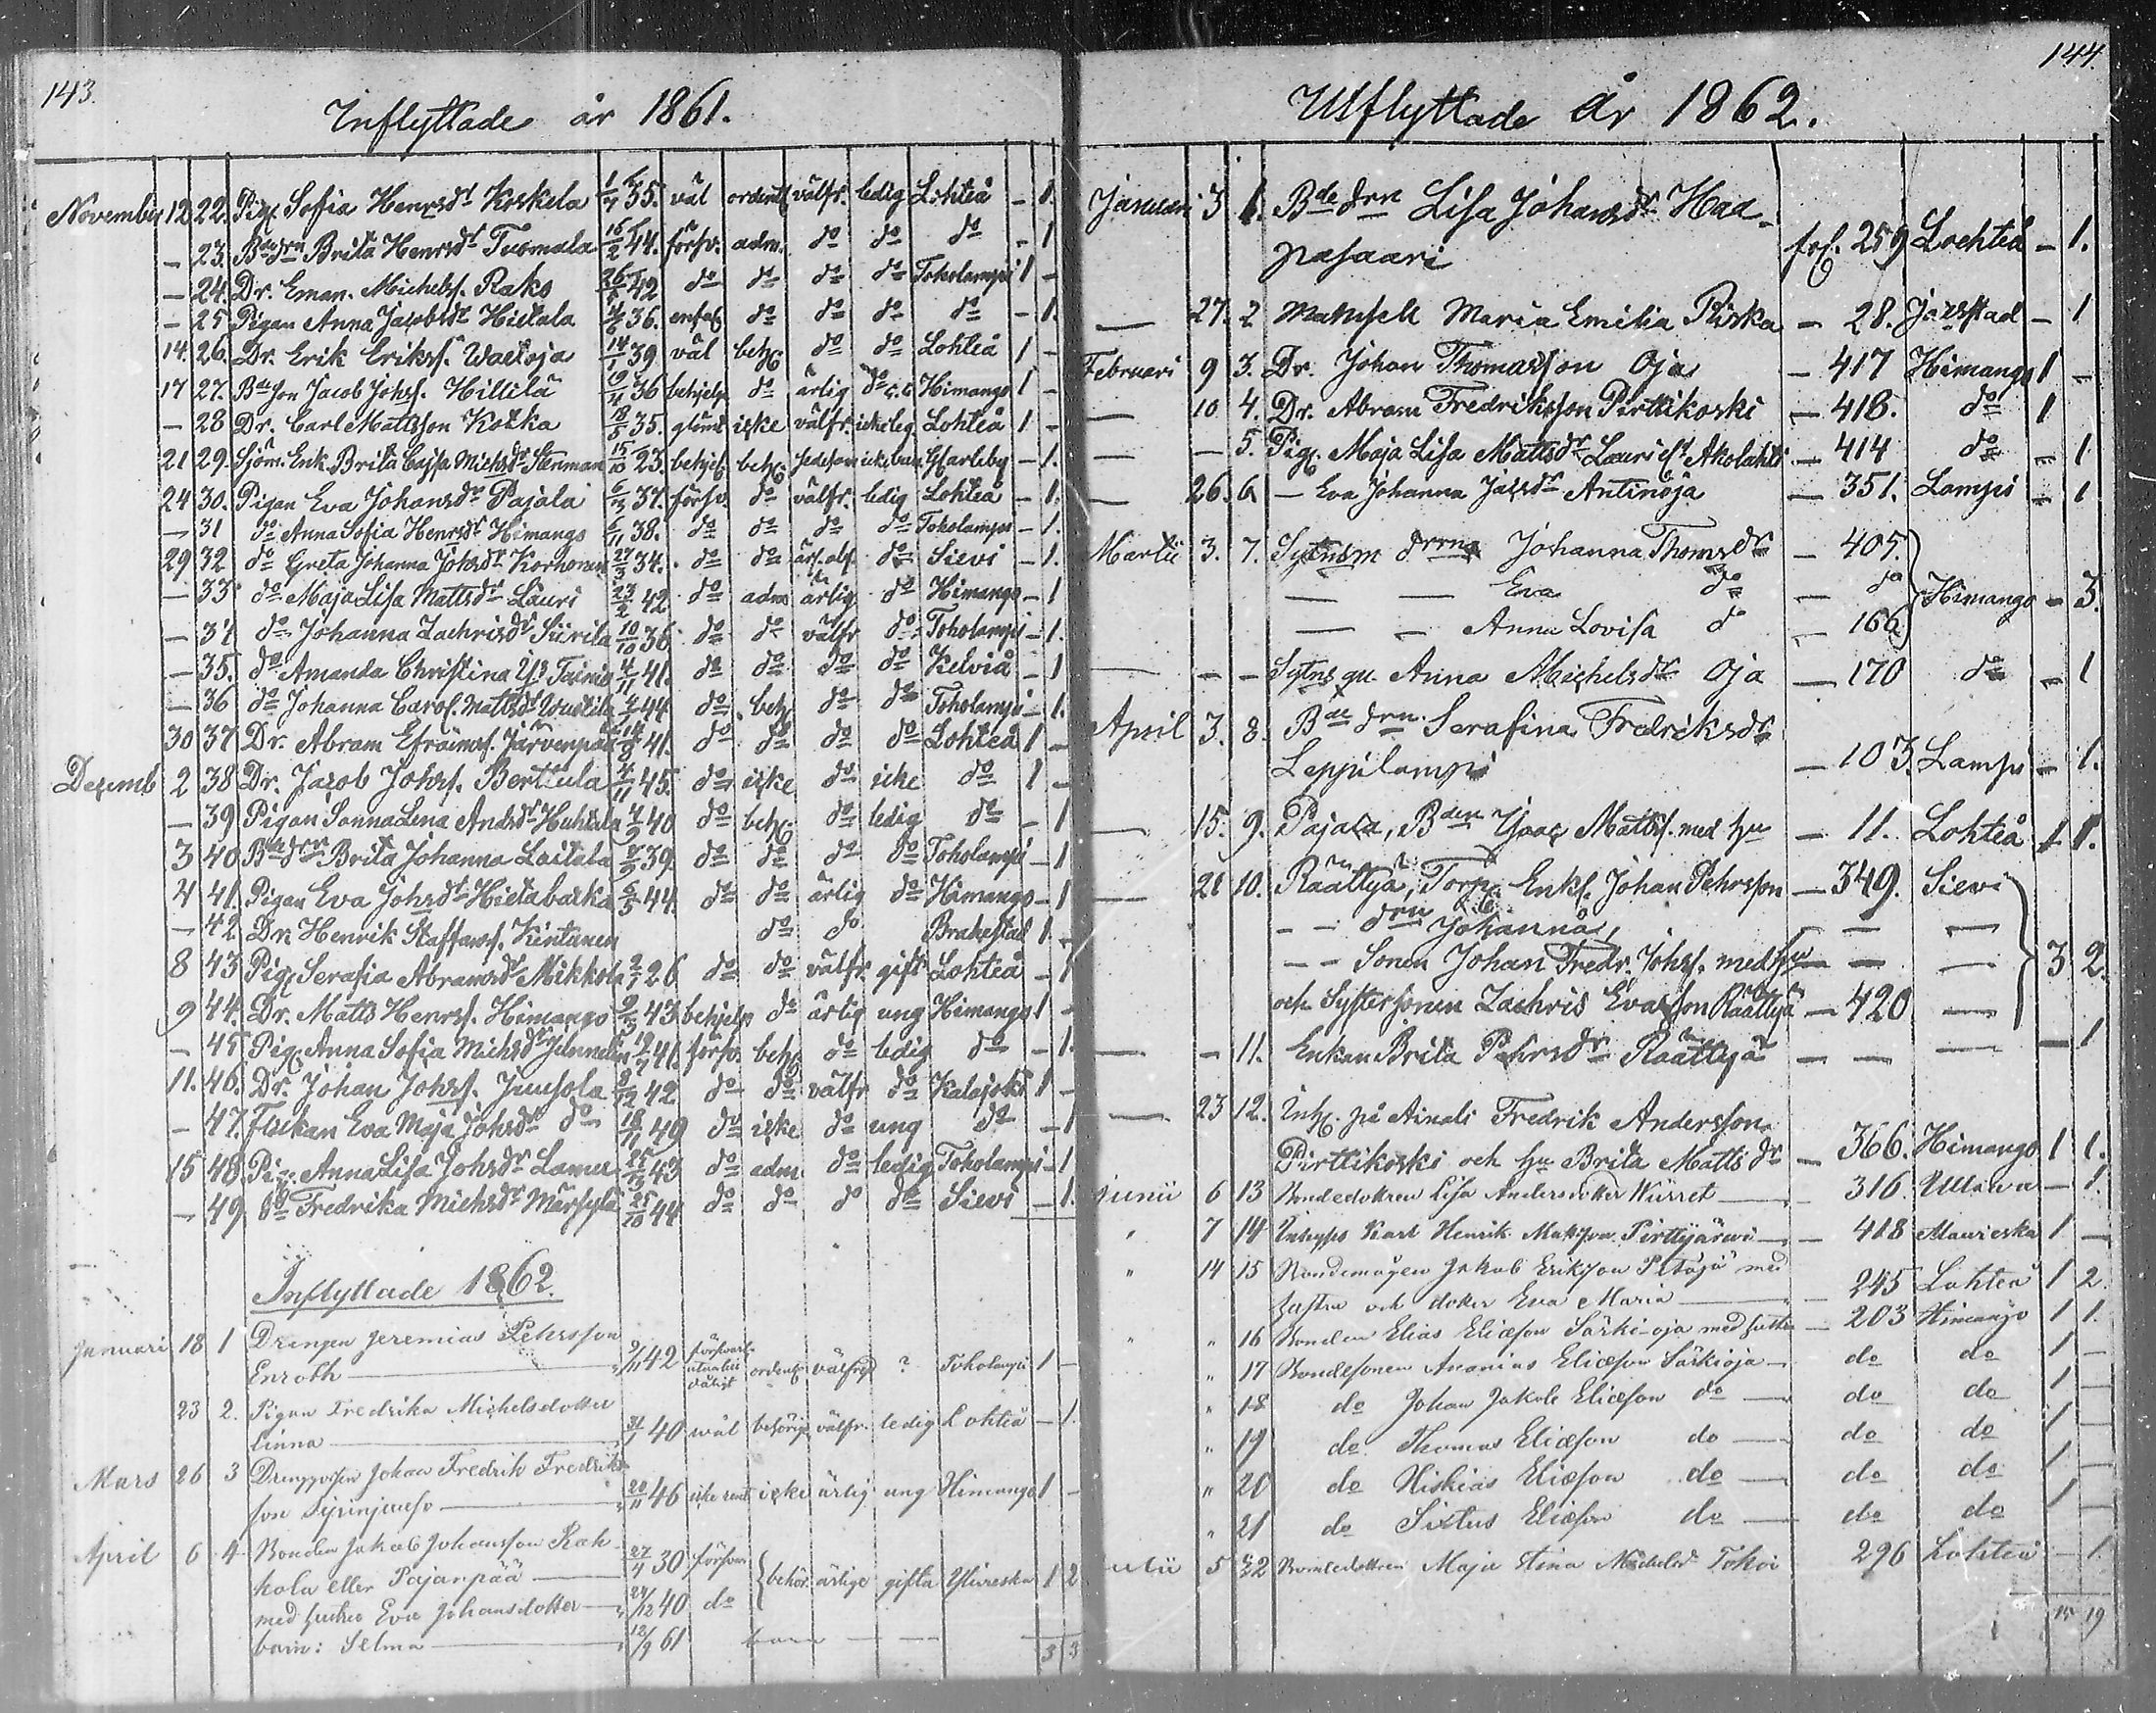 143.
Inflyttade år 1861.
November 12 22. Pig. Sofia Henrsdr Koskela 1/4 35. väl ordentl välfr. ledig Lohteå - 1.
- 23. Bdedrn Brita Henrsdr Tuomala 16/2 44. försv. adm. do do do - 1
- 24. Dr. Eman. Michelss. Rako 42 do do do do Toholampi 1 -
- 25 Pigan Anna Jacobsdr Hietala 36. do do do do - 1.
14. 26. Dr. Erik Erikss. 14/1 39 väl beh. do do Lohteå 1 -
17 27. Bdeson Jacob Johss. Hillilä 19/11 36 behjelp do ärlig do Himango 1 -
- 28 Dr. Carl Mattsson Kotka 18/5 35. icke välfr. icke leg. Lohteå 1 -
21 29. Sjöm. Enk. Brita Cajsa Michsdr Stenman 15/10 23. behjelp beh. Carleby - 1.
24 30. Pigan Eva Johansdr Pajala 6/3 37. försv. do välfr. ledig Lohteå - 1.
- 31 do Anna Sofia Henrsdr Himango 6/11 38. do do do do Toholampi - 1.
29 32 do Greta Johanna Johsdr Korhonen 27/3 34. do do do Sievi - 1.
- 33 do Maja Lisa Mattsdr Lauri 23/2 42 do adm ärlig do Himango - 1
- 34 do Johanna Zachrisdr Siirila 10/10 36 do do välfr do Toholampi - 1.
- 35. do Amanda Christina Tainio 4/11 41. do do do do Kelviå - 1
- 36 do Johanna Carol. Mattsdr 44 do beh. do do Toholampi - 1.
30 37 Dr. Abram Efraimss. Järvenpää 14/8 41. do do do do Lohteå 1 -
Decemb 2 38 Dr. Jacob Johss. Berttula 4/11 45. do icke do icke do 1 -
- 39 Pigan Sanna Lena Andrsdr Huhtala 40 do beh. do ledig do - 1
3 40. Bdedrn Brita Johanna Laitala 39. do do do do Toholampi - 1
4 41. Pigan Eva Johsdr Hietabarka 6/5 44. do do ärlig do Himango - 1
- 42. Dr. Henrik Staffanss. Kintanen do do Brahestad 1. -
8 43 Pig. Serafia Abramsdr Mikkola 2/1 26 do do välfr. gift Lohteå - 1
9 44. Dr. Matts Henrss. Himango 9/3 43. behjelp do ärlig ung Himango 1 -
- 45 Pig. Anna Sofia Michsdr Junnelin 41. försv. beh. do ledig do - 1.
11. 46. Dr. Johan Johss. Juusola 8/12 42 do do välfr do Kalajoki 1 -
- 47. Flickan Eva Maja Johsdr do 18/11 49 do icke do ung do - 1
15 48 Pig. Anna Lisa Johsdr Lamu 25/12 43 do adm do ledig Toholampi - 1
- 49. do Fredrika Michsdr Märsylä 25/10 44 do do do do Sievi - 1.
Inflyttade 1862.
Januari 18 1 Drengen Jeremias Pehrsson
Enroth 9/11 42 försvarl. ordentl. välfrejd ? Toholampi 1 -
23 2. Pigan Fredrika Michelsdotter
Linna 31/7 40 wäl behörig välfr. ledig Lohteå - 1.
Mars 26 3 Johan Fredrik Fredriks-
son 20/11 46 icke icke ärlig ung Himango 1 -
April 6 4 Bonden Jakob Johansson Rah-
kola eller Pajanpää 27/4 30 försvar
med hustru Eva Johansdotter 24/12 40 do behör. ärlige gifta Ylivieska 1 2
barn: Selma 12/9 61 barn
3 3
144.
Utflyttade år 1862.
Januari 3 1. Bdedrn Lisa Johansdr Haa-
pasaari fol. 259 Lochteå - 1.
- 27. 2 Mamsell Maria Emilia Riska - 28. Jacobstad - 1
Februari 9 3. Dr. Johan Thomasson Oja - 417 Himango 1 -
- 10 4. Dr. Abram Fredriksson Pirttikoski - 418. do 1
- - 5. Pig. Maja Lisa Mattsdr Lauri el. Akolahti - 414 do - 1
- 26. 6 - Eva Johanna Jacsdr Antinoja - 351. Lampi - 1
Martii 3. 7. Sytnsm drrna Johanna Thomsdr - 405.
- - Eva do - do Himango - 3.
- - Anna Lovisa do - 166
- - - Sytns qu. Anna Michelsdr Oja - 170 do - 1
April 3. 8. Bdedrn Serafina Fredriksdr
Leppilampi - 103. Lampi - 1.
- 15. 9. Pajala, Bden Isac Mattss. med hu - 11. Lohteå 1 1.
- 21 10. Räättyä, Torp. Enkl. Johan Pehrsson - 349. Sievi
- - drn Johanna, - -
- - Sonen Johan Fredr. Johss. med hu - - 3 2.
och Systersonen Zachris Evasson Räättyä - 420 -
- - 11. Enkan Brita Pehrsdr Räättyä - - - - 1
- 23 12. Inh. på Ainali Fredrik Andersson
Pirttikoski och hu Brita Mattsdr - 366. Himango 1 1.
Junii 6 13 Bondedottren Lisa Andersdotter Wiirret - 316. Ullava - 1.
" 7 14 Inhyses Karl Henrik Mattsson Pirttijärvi - 418 Haurieska 1 -
" 14 15 Bondemågen Jakob Eriksson Petäjä med
hustru och dotter Eva Maria - 245 Lohteå 1 2.
" " 16 Bonden Elias Eliasson Särki-oja med hustru - 203 Himango 1 1.
" 17 Bondesonen Ananias Eliasson Särkioja - do do 1 -
" 18 do Johan Jakob Eliasson do - do do 1 -
" 19 do Thomas Eliasson do - do do 1 -
" 20 do Hiskias Eliasson do - do do 1 -
" 21 do Sixtus Eliasson do - do do 1 -
5 22 Bondedottren Maja Stina Michelsd. Tokoi 296 Lohteå - 1.
15 19